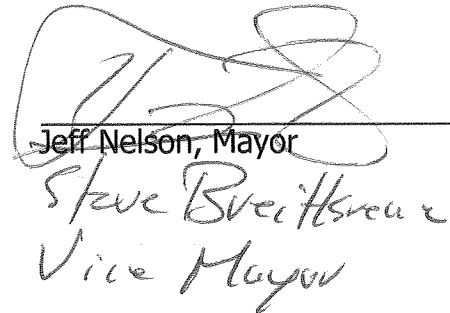 Jeff Nelson, Mayor
Steve Breitkreuz
Vice Mayor